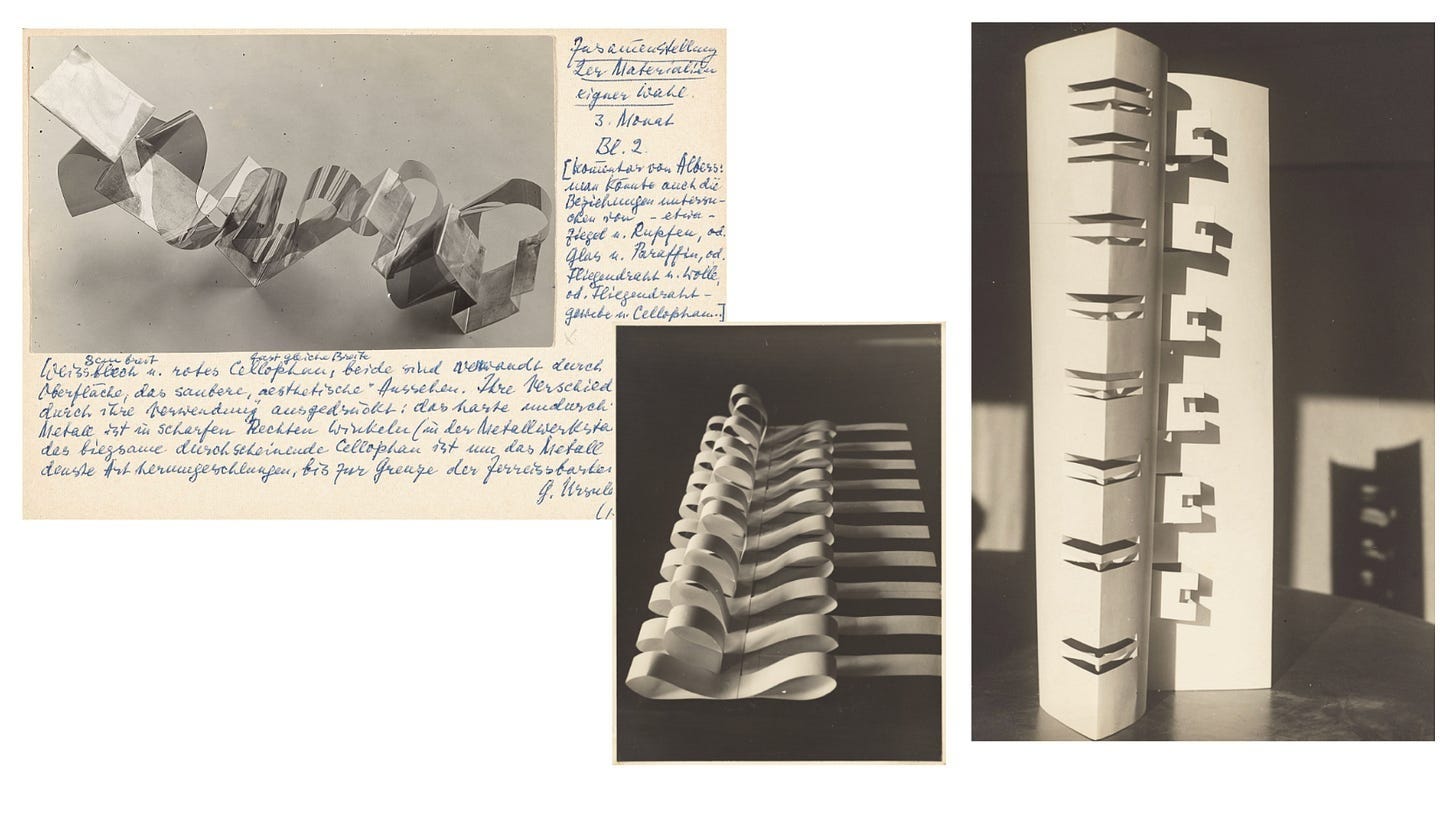 Zusamenstellung
Zer Materialien
eigner Wahl.
3. Monat
Bl. 2.
[Komentar von Albers:
man könnte auch die
Beziehungen untersu-
chen von - etwa -
Ziegel u. Rupfen, od.
Glas u. Paraffin, od.
Fliegendraht u. Wolle,
od. Fliegendraht -
gewebe u. Cellophan..]
3cm breit fast gleiche Breite
Weissblech u. rotes Cellophan, beide sind verwandt durch
Oberfläche, das saubere, „aesthetische" Aussehen. Ihre Verschied
durch ihre Verwendung ausgedrückt: das harte undurch
Metall ist in scharfen Rechten Winkeln (in der Metallwerksta
das biegsame durchscheinende Cellophan ist um das Metall
denste Art herumgeschlungen, bis zur Grenze der Zerreissbarkei
G. Ursula
(1